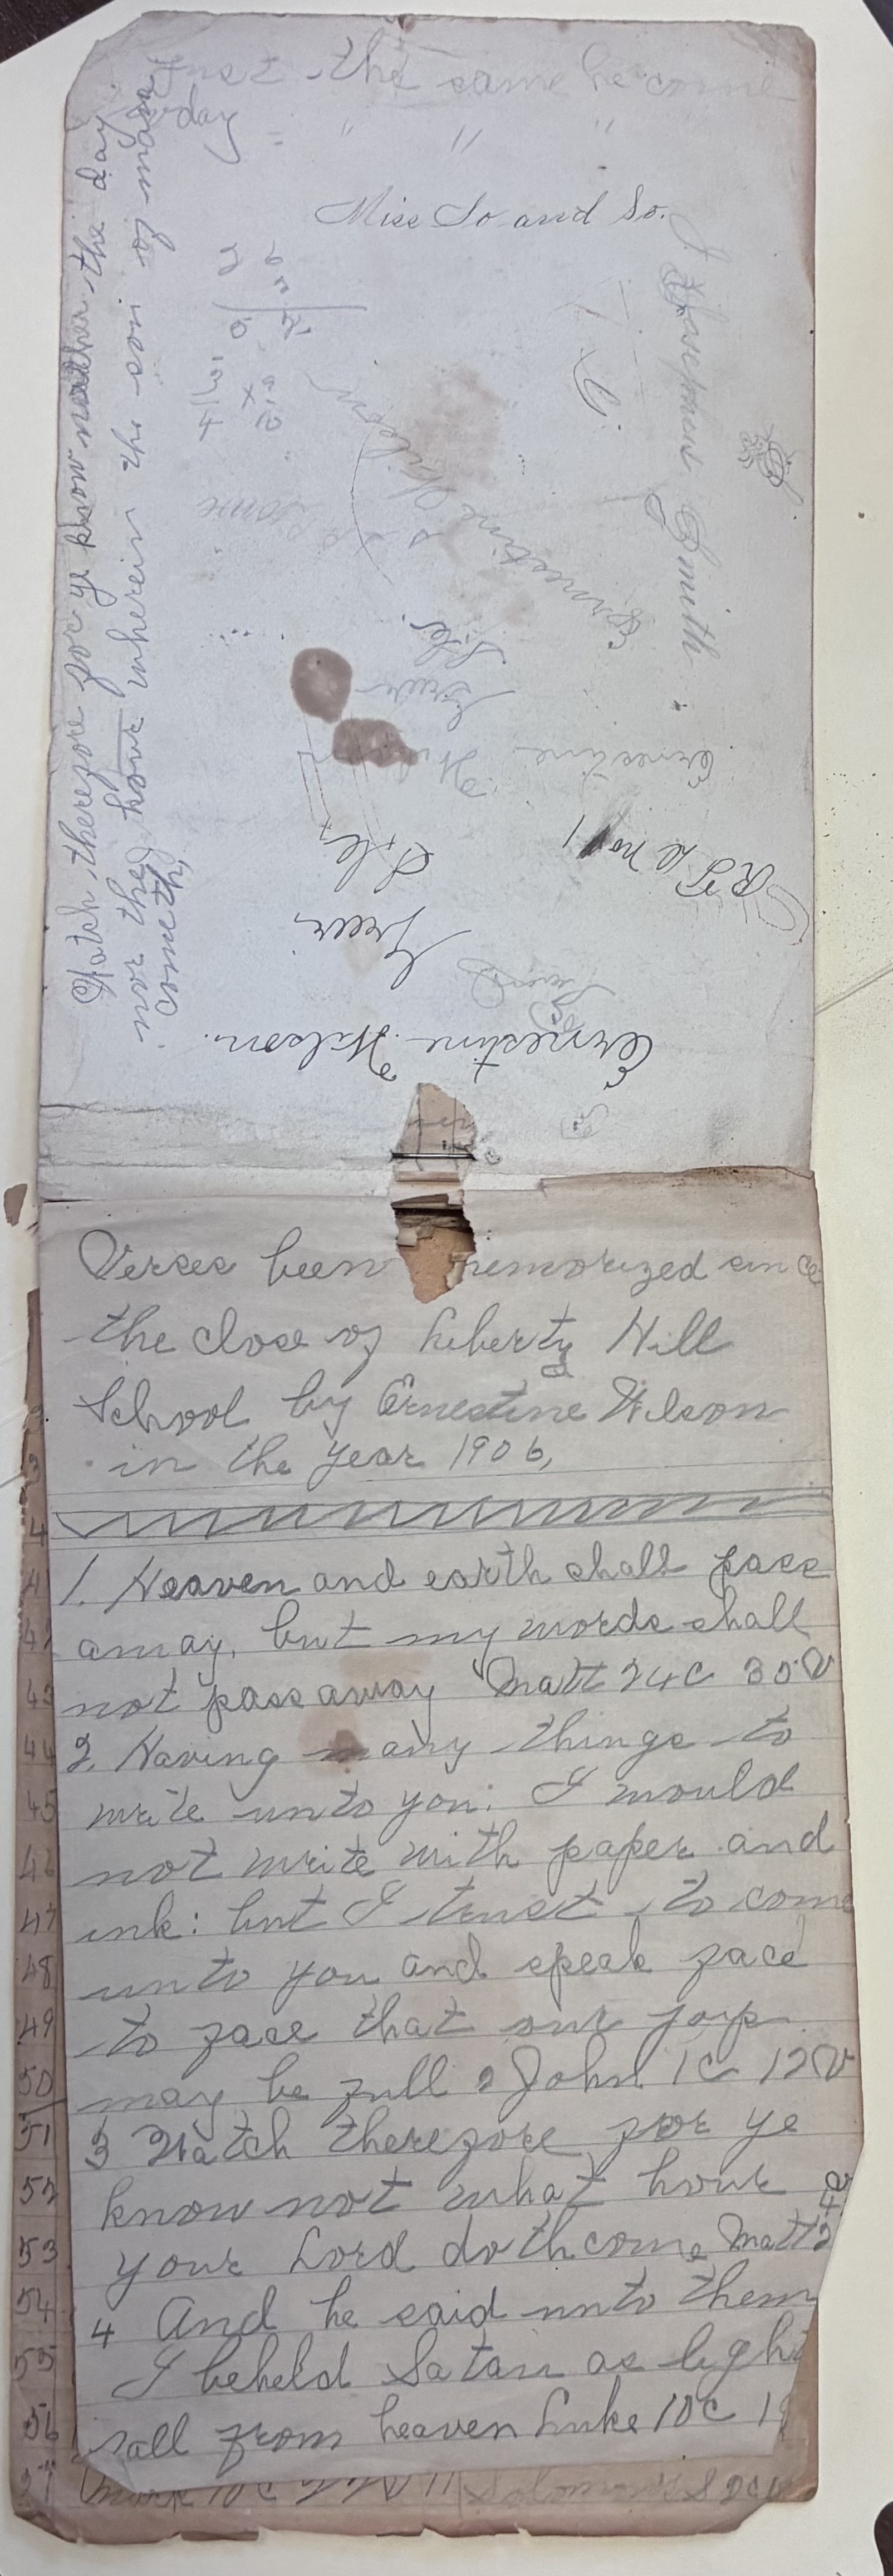 Just the same he come
day = " " "
Miss So and So.
Watch therefore for ye know neather the day
nor the hour wherein the son of man
cometh,
Josephine Smith
Ernestine Wilson
Greer
S.C.
Ernestine
Greer, S.C,
R F D no 1
Ernestine Wilson.
Verses been memorized since
the close of Liberty Hill
School by Ernestine Wilson
in the year 1906,
1. Heaven and earth shall pass
away, but my words shall
not pass away Matt 24c 35V
2. Having many things to
write unto you: I would
not write with paper and
ink: but I trust to come
unto you and speak face
to face that our joys
may be full 2 John 1c 12V
3 Watch therefore for ye
know not what hour
your Lord doth come Matt 2
4 And he said unto them
I beheld Satan as light
fall from heaven Luke 10c 1
4
41
42
43
44
45
46
47
48
49
50
51
52
53
54
55
56